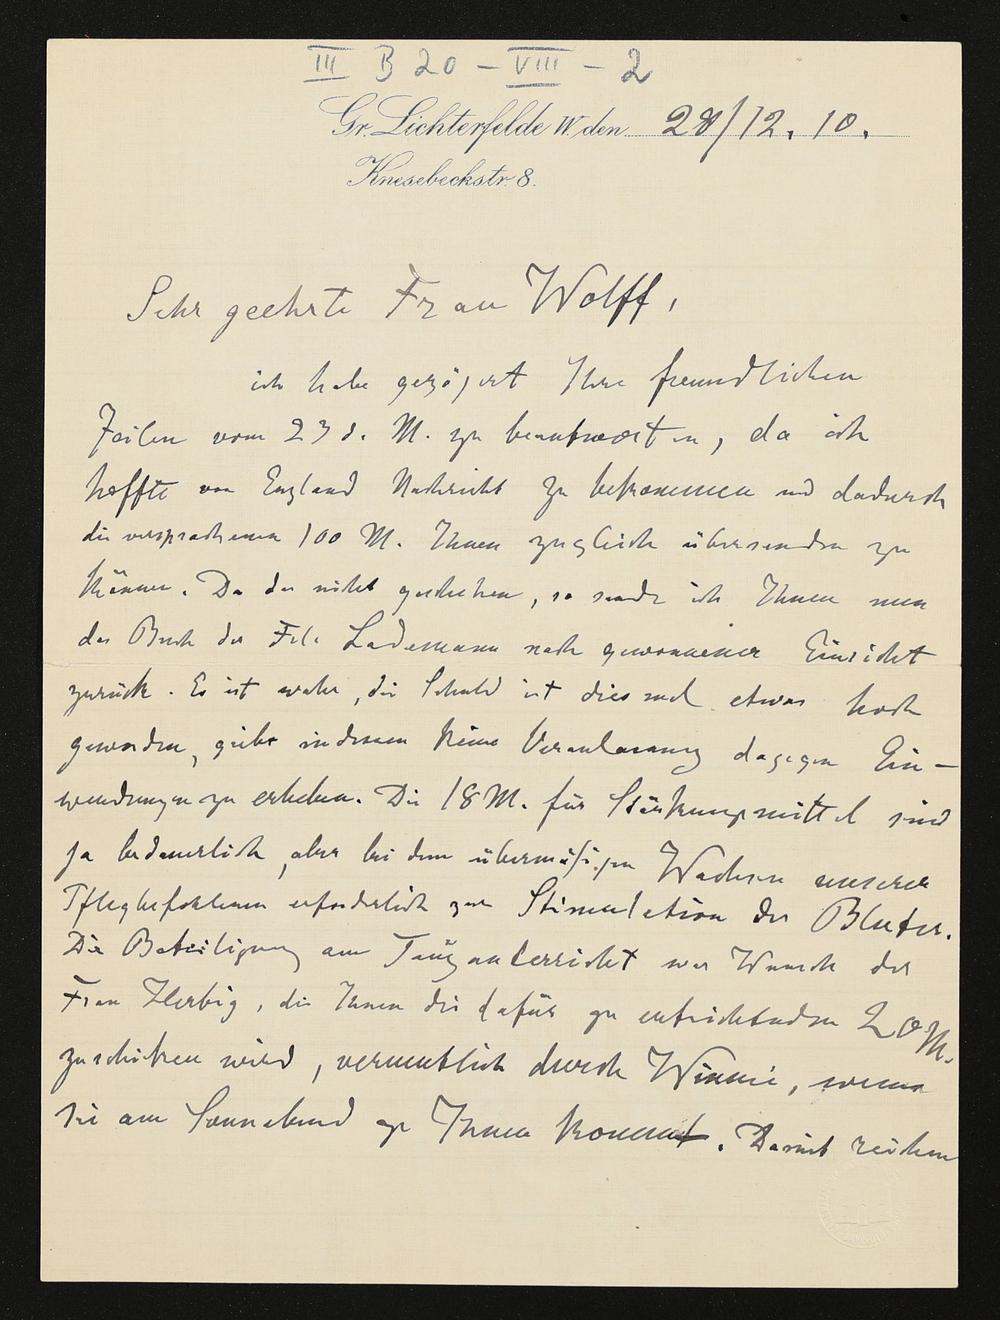 III B 20 – VIII – 2
Gr. Lichterfelde W. den 28/12. 10.
Knesebeckstr. 8.
Sehr geehrte Frau Wolff,
ich habe gezögert Ihre freundlichen
Zeilen vom 23 d. M. zu beantworten, da ich
hoffte von England Nachricht zu bekommen und dadurch
die versprochenen 100 M. Ihnen zugleich übersenden zu
können. Da das nicht geschehen, so sende ich Ihnen nun
das Buch der Frl. Lademann nach gewonnener Einsicht
zurück. Es ist wahr, die Schuld ist diesmal etwas hoch
geworden, giebt indessen keine Veranlassung dagegen Ein-
wendungen zu erheben. Die 18 M. für Stärkungsmittel sind
ja bedauerlich, aber bei dem übermäßigen Wachsen unserer
Pflegbefohlenen erforderlich zur Stimulation des Blutes.
Die Beteiligung am Tanzunterricht war Wunsch der
Frau Herbig, die Ihnen die dafür zu entrichtenden 20 M.
zuschicken wird, vermutlich durch Winnie, wenn
sie am Sonnabend zu Ihnen kommt. Damit reichen